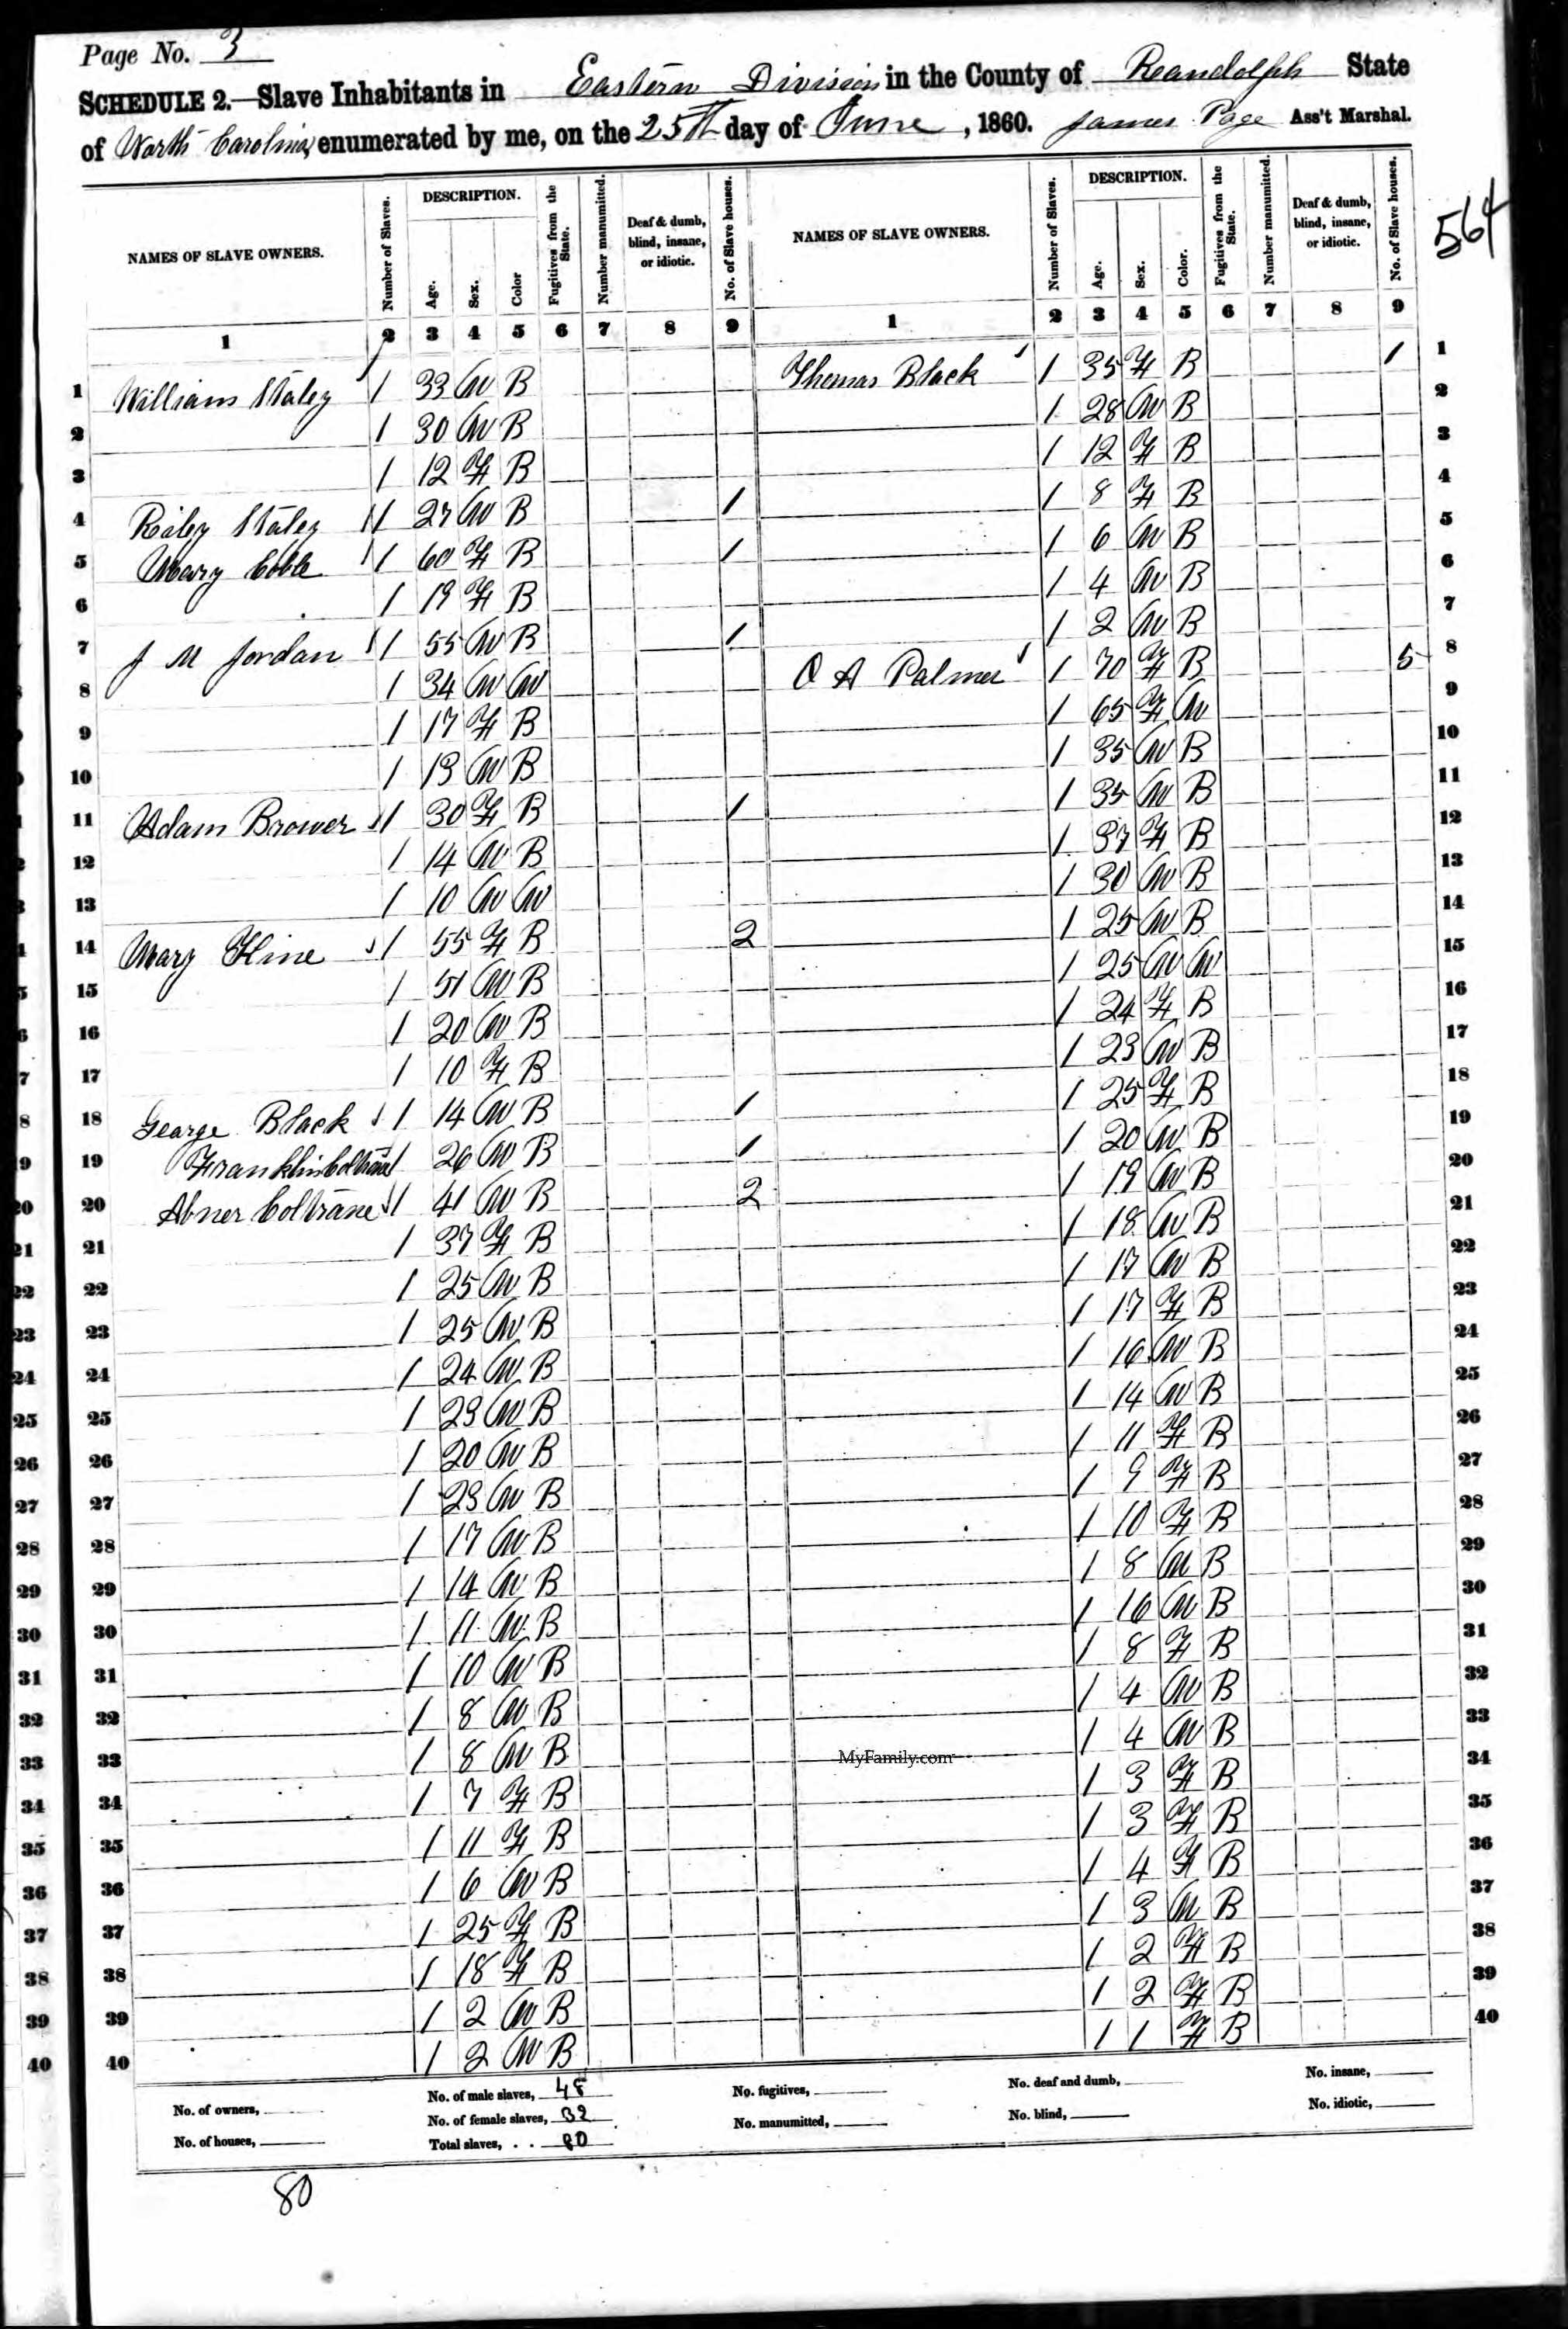 Page No. 3
SCHEDULE 2.—Slave Inhabitants in Eastern Division in the County of Randolph State
of North Carolina, enumerated by me, on the 25th day of June, 1860. James Page Ass't Marshal.
564
NAMES OF SLAVE OWNERS. Number of Slaves. DESCRIPTION. Age. Sex. Color Fugitives from the State. Number manumitted. Deaf & dumb, blind, insane, or idiotic. No. of Slave houses. NAMES OF SLAVE OWNERS. Number of Slaves. DESCRIPTION. Age. Sex. Color. Fugitives from the State. Number manumitted. Deaf & dumb, blind, insane, or idiotic. No. of Slave houses.
1 2 3 4 5 6 7 8 9 1 2 3 4 5 6 7 8 9
1 William Staley 1 33 M B Thomas Black 1 35 F B 1 1
2 1 30 M B 1 28 M B 2
3 1 12 F B 1 12 F B 3
4 Riley Staley 1 27 M B 1 1 8 F B 4
5 Mary Coble 1 60 F B 1 1 6 M B 5
6 1 19 F B 1 4 M B 6
7 J M Jordan 1 55 M B 1 1 2 M B 7
8 1 34 M M O A Palmer 1 70 F B 5 8
9 1 17 F B 1 65 F M 9
10 1 13 M B 1 35 M B 10
11 Adam Brower 1 30 F B 1 1 35 M B 11
12 1 14 M B 1 37 F B 12
13 1 10 M M 1 30 M B 13
14 Mary Kine 1 55 F B 2 1 25 M B 14
15 1 51 M B 1 25 M M 15
16 1 20 M B 1 24 F B 16
17 1 10 F B 1 23 M B 17
18 George Black 1 14 M B 1 1 25 F B 18
19 Franklin Coltrane 1 26 M B 1 1 20 M B 19
20 Abner Coltrane 1 41 M B 2 1 19 M B 20
21 1 37 F B 1 18 M B 21
22 1 25 M B 1 17 M B 22
23 1 25 M B 1 17 F B 23
24 1 24 M B 1 16 M B 24
25 1 23 M B 1 14 M B 25
26 1 20 M B 1 11 F B 26
27 1 23 M B 1 9 F B 27
28 1 17 M B 1 10 F B 28
29 1 14 M B 1 8 M B 29
30 1 11 M B 1 16 M B 30
31 1 10 M B 1 8 F B 31
32 1 8 M B 1 4 M B 32
33 1 8 M B 1 4 M B 33
34 1 7 F B 1 3 F B 34
35 1 11 F B 1 3 F B 35
36 1 6 M B 1 4 F B 36
37 1 25 F B 1 3 M B 37
38 1 18 F B 1 2 F B 38
39 1 2 M B 1 2 F B 39
40 1 2 M B 1 1 F B 40
MyFamily.com
No. of owners, No. of male slaves, 48 No. fugitives, No. deaf and dumb, No. insane,
No. of houses, No. of female slaves, 32 No. manumitted, No. blind, No. idiotic,
Total slaves, . . 80
80